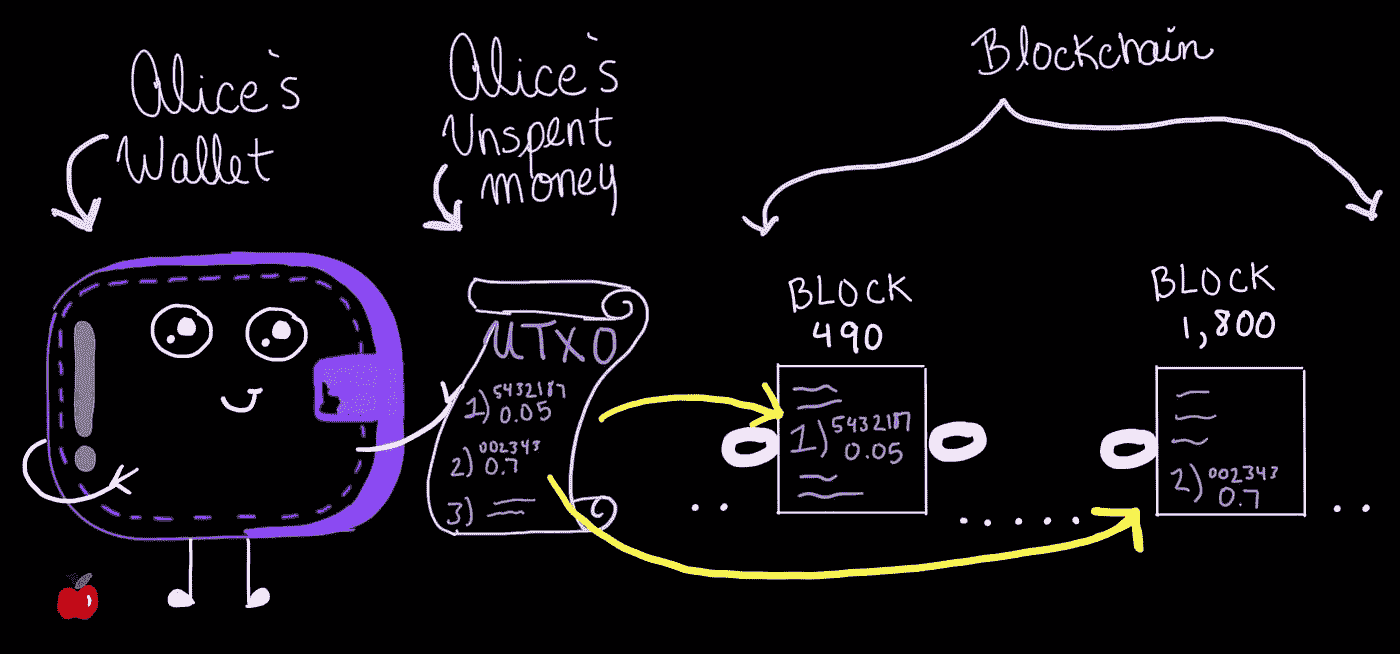 Alice's
Wallet
Alice's
Unspent
money
Blockchain
UTXO
1) 5432187
0.05
2) 002343
0.7
3)
BLOCK
490
1) 5432187
0.05
BLOCK
1,800
2) 002343
0.7